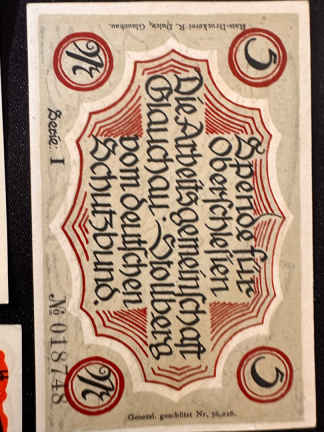 Kun-Druckerei R. Dulce, Glauchau.
5
5
Spende für
Oberschlesien
Die Arbeitsgemeinschaft
Glauchau-Stollberg
vom deutschen
Schutzbund.
M
M
Serie: I
№ 018748
Gesetzl. geschützt Nr. 56,026.